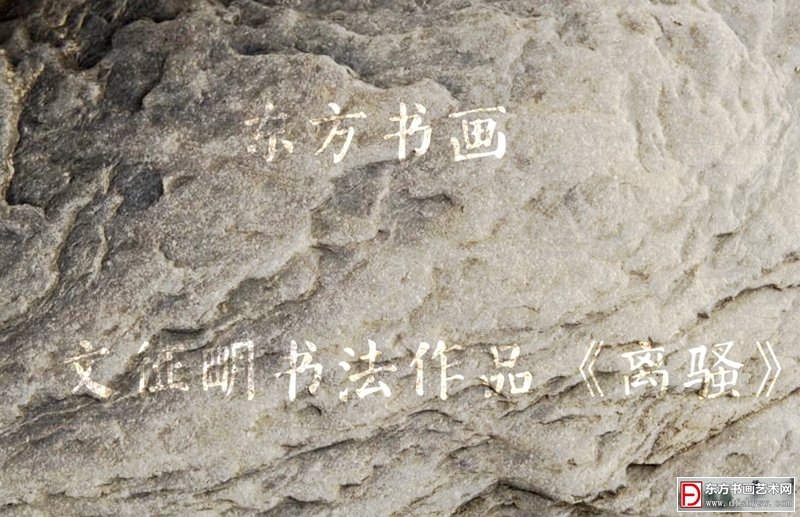 东方书画
文征明书法作品《离骚》
东方书画艺术网
www.dfshysw.com